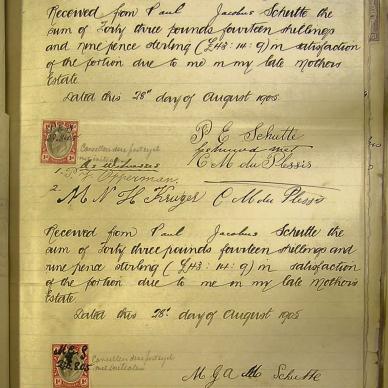 Received from Paul Jacobus Schutte the
sum of Forty three pounds fourteen shillings
and nine pence sterling (£43:14:9) in satisfaction
of the portion due to me in my late Mothers
Estate.
Dated this 28th day of August 1905
P E Schutte
Getrouwd met
C M du Plessis
Cancellen deze postzegel
met initialen
As Witnesses
1. Opperman
2 M N H Kruger C M du Plessis
Received from Paul Jacobus Schutte the
sum of Forty three pounds fourteen shillings and
nine pence sterling (£43:14:9) in satisfaction
of the portion due to me in my late Mothers
Estate.
Dated this 28th day of August 1905
Cancellen deze postzegel
met initialen
M J A M Schutte